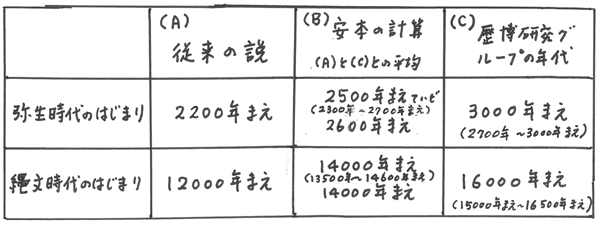 (A)
従来の説
(B)
安本の計算
(A)と(C)との平均
(C)
歴博研究グ
ループの年代
弥生時代のはじまり
2200年まえ
2500年まえていど
(2300年~2700年まえ)
2600年まえ
3000年まえ
(2700年~3000年まえ)
縄文時代のはじまり
12000年まえ
14000年まえ
(13500年~14600年まえ)
14000年まえ
16000年まえ
(15000年まえ~16500年まえ)